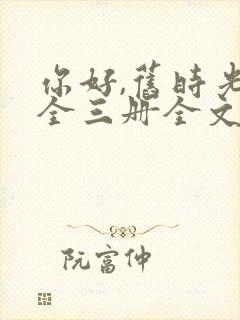 你好,舊時光
全三册全文
阮富仲